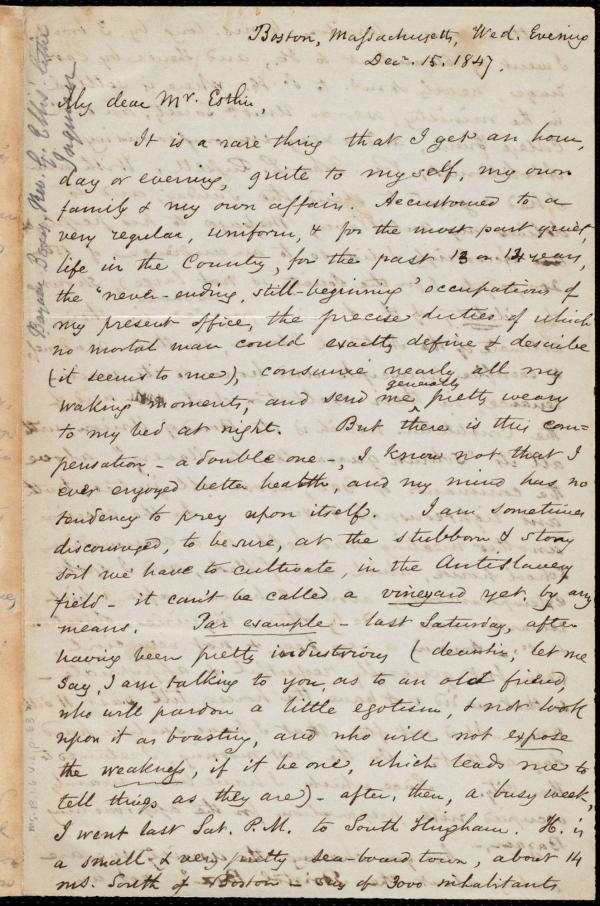 Boston, Massachusetts, Wed. Evening
Decr. 15. 1847.
My dear Mr. Estlin,
It is a rare thing that I get an hour,
day or evening, quite to myself, my own
family & my own affairs. Accustomed to a
very regular, uniform, & for the most part quiet,
life in the Country, for the past 13 or 14 years,
the "never-ending, still-beginning" occupations of
my present office, the precise duties of which
no mortal man could exactly define & describe
(it seems to me), consume nearly all my
waking moments, and send me generally pretty weary
to my bed at night. But there is this com=
pensation - a double one -, I know not that I
ever enjoyed better health, and my mind has no
tendency to prey upon itself. I am sometimes
discouraged, to be sure, at the stubborn & stony
soil we have to cultivate, in the Antislavery
field - it can't be called a vineyard yet, by any
means. Par example - last Saturday, after
having been pretty industrious (decentir, let me
say, I am talking to you, as to an old friend,
who will pardon a little egotism, & not look
upon it as boasting, and who will not expose
the weakness, if it be one, which leads me to
tell things as they are) - after, then, a busy week,
I went last Sat. P.M. to South Hingham. H. is
a small & very pretty sea-board town, about 14
ms. South of Boston - say of 3000 inhabitants
Bazaar Boxes, Rev. G. Ellis
Inquirer